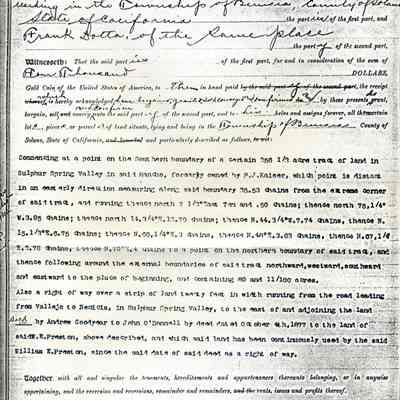 residing in the Township of Benicia, County of Solano
State of California the parties of the first part, and
Frank Dotta, of the Same place
the party of the second part,
Witnesseth: That the said parties of the first part, for and in consideration of the sum of
Ten Thousand DOLLARS,
Gold Coin of the United States of America, to them in hand paid by the said party of the second part, the receipt
whereof is hereby acknowledged, have by these presents, grant,
bargain, sell and unto the said party of the second part, and to his heirs and assigns forever, all th certain
lot piece or parcel of land situate, lying and being in the Township of Benicia County of
Solano, State of California, and bounded and particularly described as follows, to-wit:
Commencing at a point on the Southern boundary of a certain 358 1/3 acre tract of land in
Sulphur Spring Valley in said Rancho, formerly owned by N.J.Kaiser, which point is distant
in an easterly direction measuring along said boundary 35.53 chains from the extreme corner
of said tract, and running thence north 2 1/2°East Ten and .50 chains; thence north 75,1/4°
W.3.85 chains; thence north 14,3/4°E.13.79 chains; thence N.44,3/4°E.7.74 chains, thence N.
15,1/2°E.6.75 chains; thence N.60,1/4°E.1 chains, thence N.48°E.3.62 chains, thence N.67,1/4°
E.3.78 chains, thence N.70°E.4 chains to a point on the northern boundary of said tract, and
thence following around the external boundaries of said tract northward,westward,southward
and eastward to the place of beginning, and containing 80 and 11/100 acres.
Also a right of way over a strip of land twenty feet in width running from the road leading
from Vallejo to Benicia, in Sulphur Spring Valley, to the east of and adjoining the land
sold by Andrew Goodyear to John O'Donnell by deed dated October 4th,1877 to the land of
said W.E.Preston, above described, and which said land has been continuously used by the said
William E.Preston, since the said date of said deed as a right of way.
Together with all and singular the tenements, hereditaments and appurtenances thereunto belonging, or in anywise
appertaining, and the reversion and reversions, remainder and remainders, and the rents, issues and profits thereof.